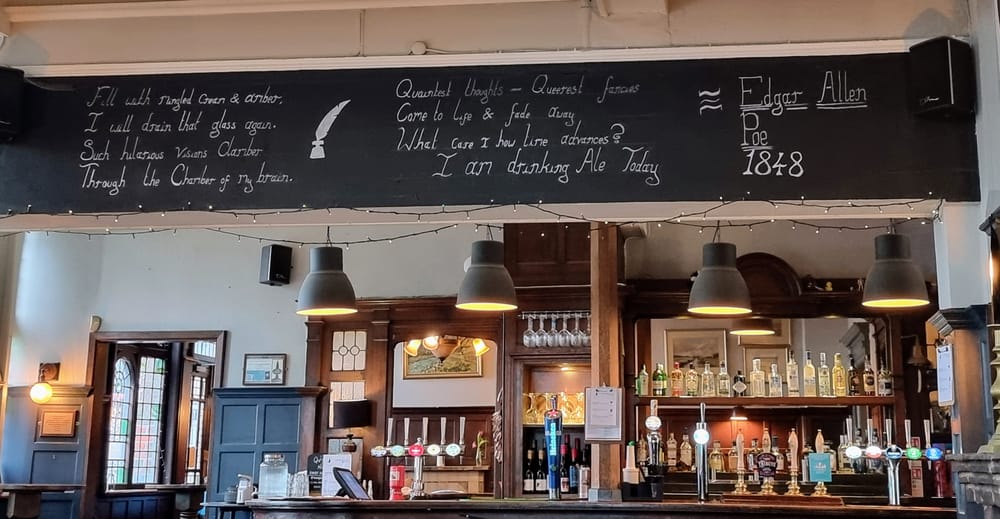 Fill with mingled Cream & amber,
I will drain that glass again.
Such hilarious visions Clamber
Through the Chamber of my brain.
Quaintest thoughts — Queerest fancies
Come to life & fade away
What care I how time advances?
I am drinking Ale Today
≈ Edgar Allen
Poe
1848